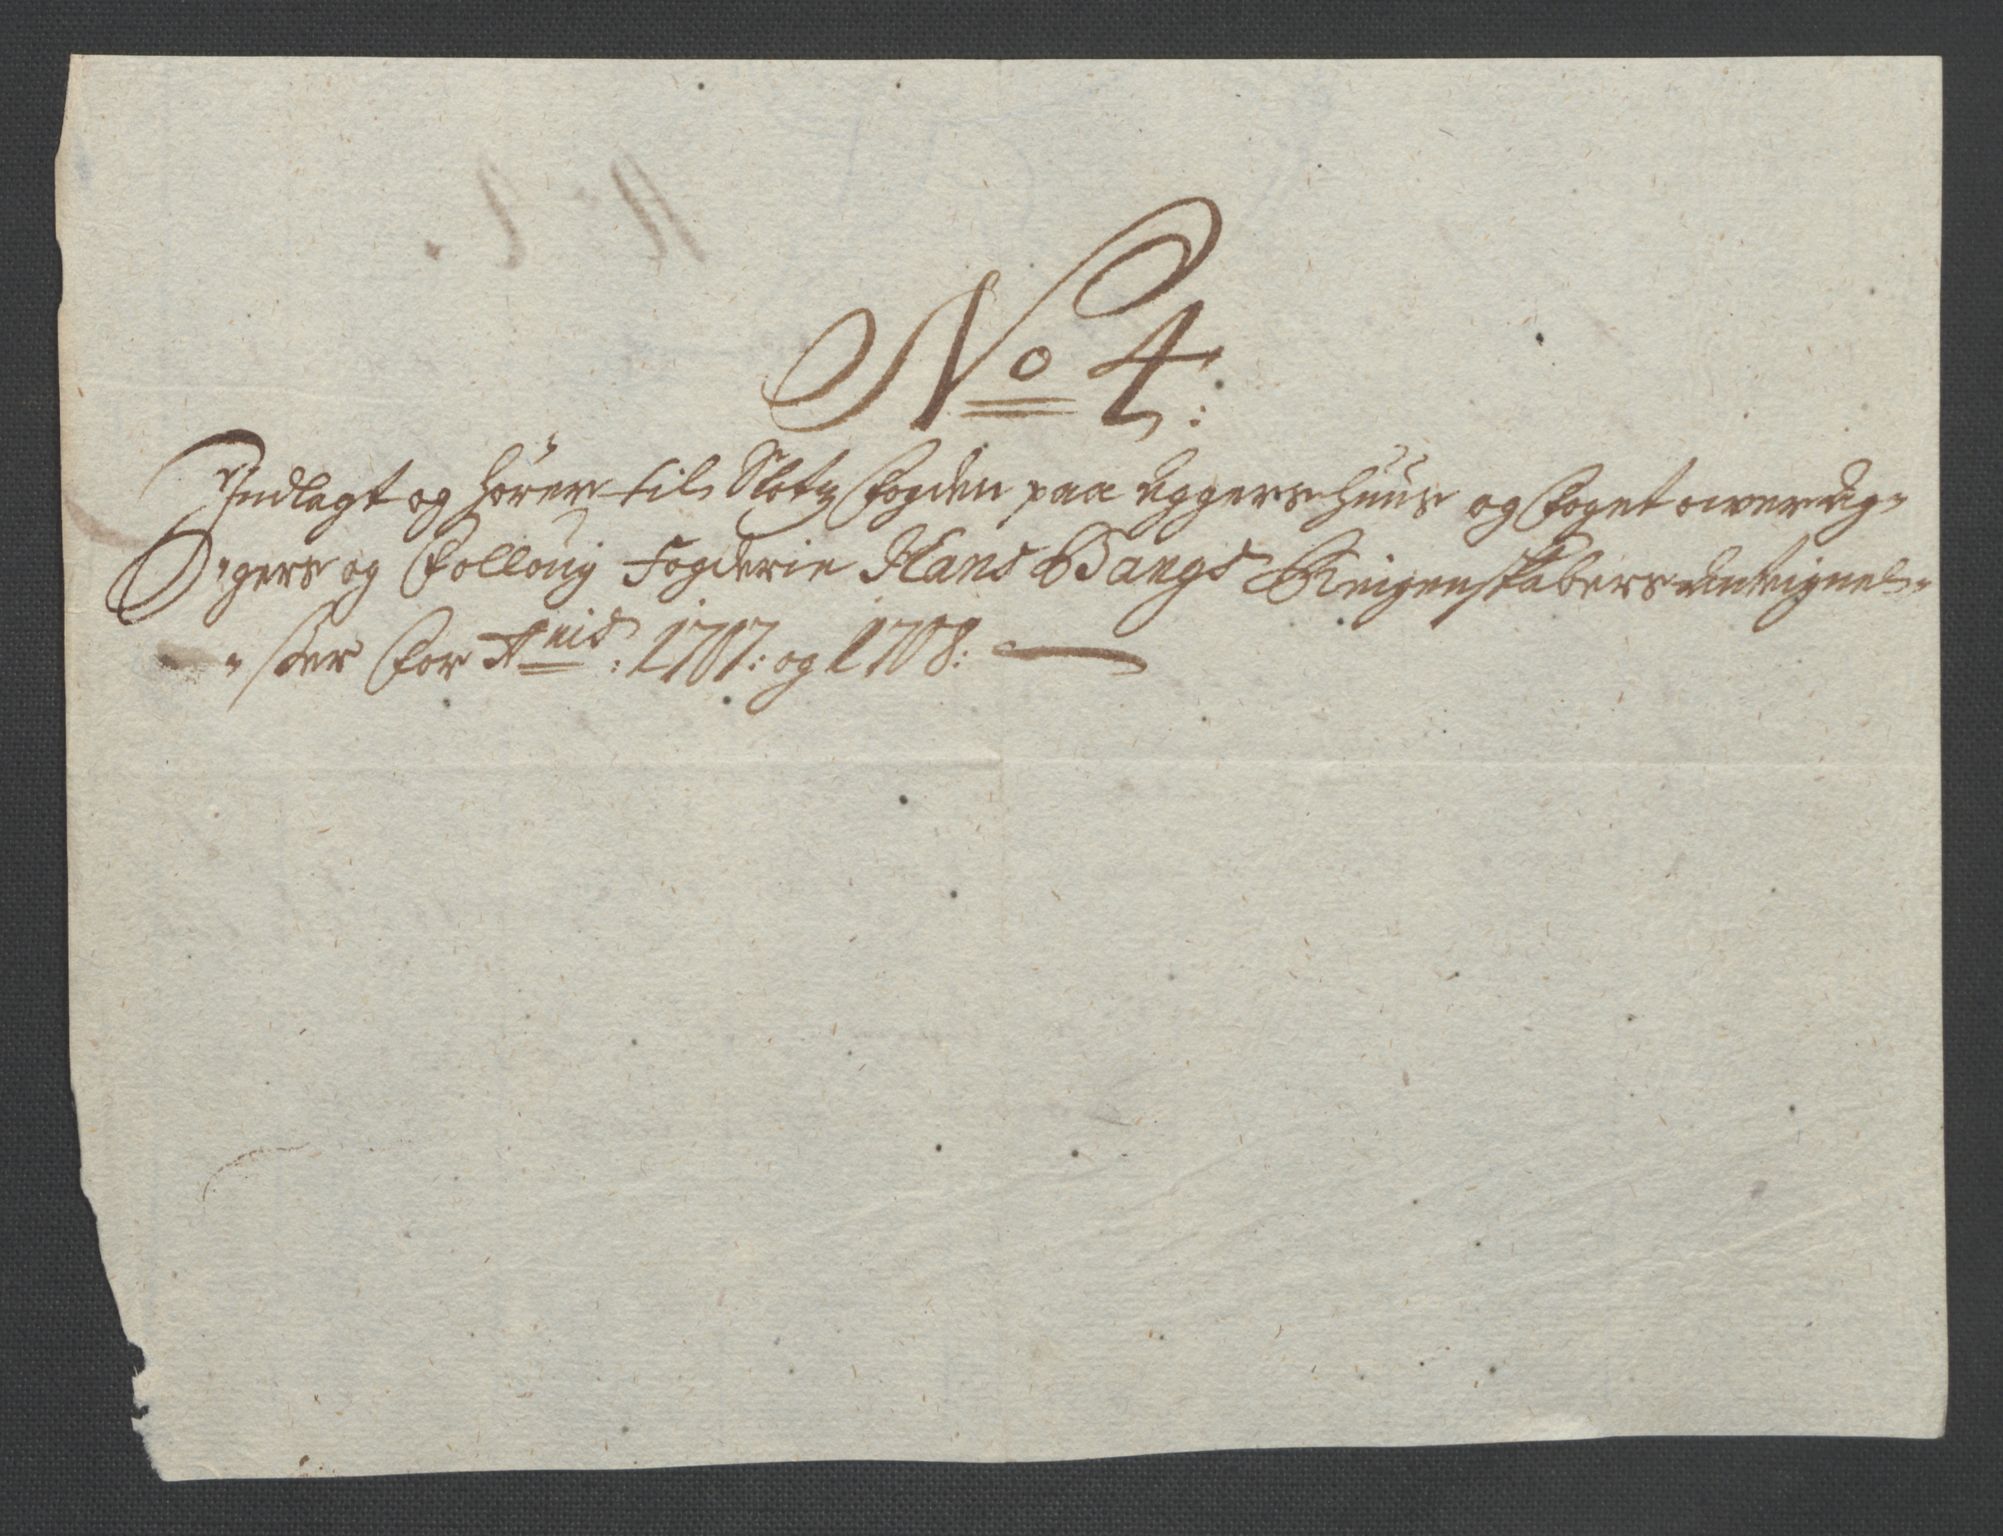 No 4:
Indlagt og hører til Slotz fogden paa Aggershuus og foget over Ag-
gers og Folloug Fogderie Hans Bangs Reigenskabers Anteignel-
ser for Anis: 1707: og 1708: